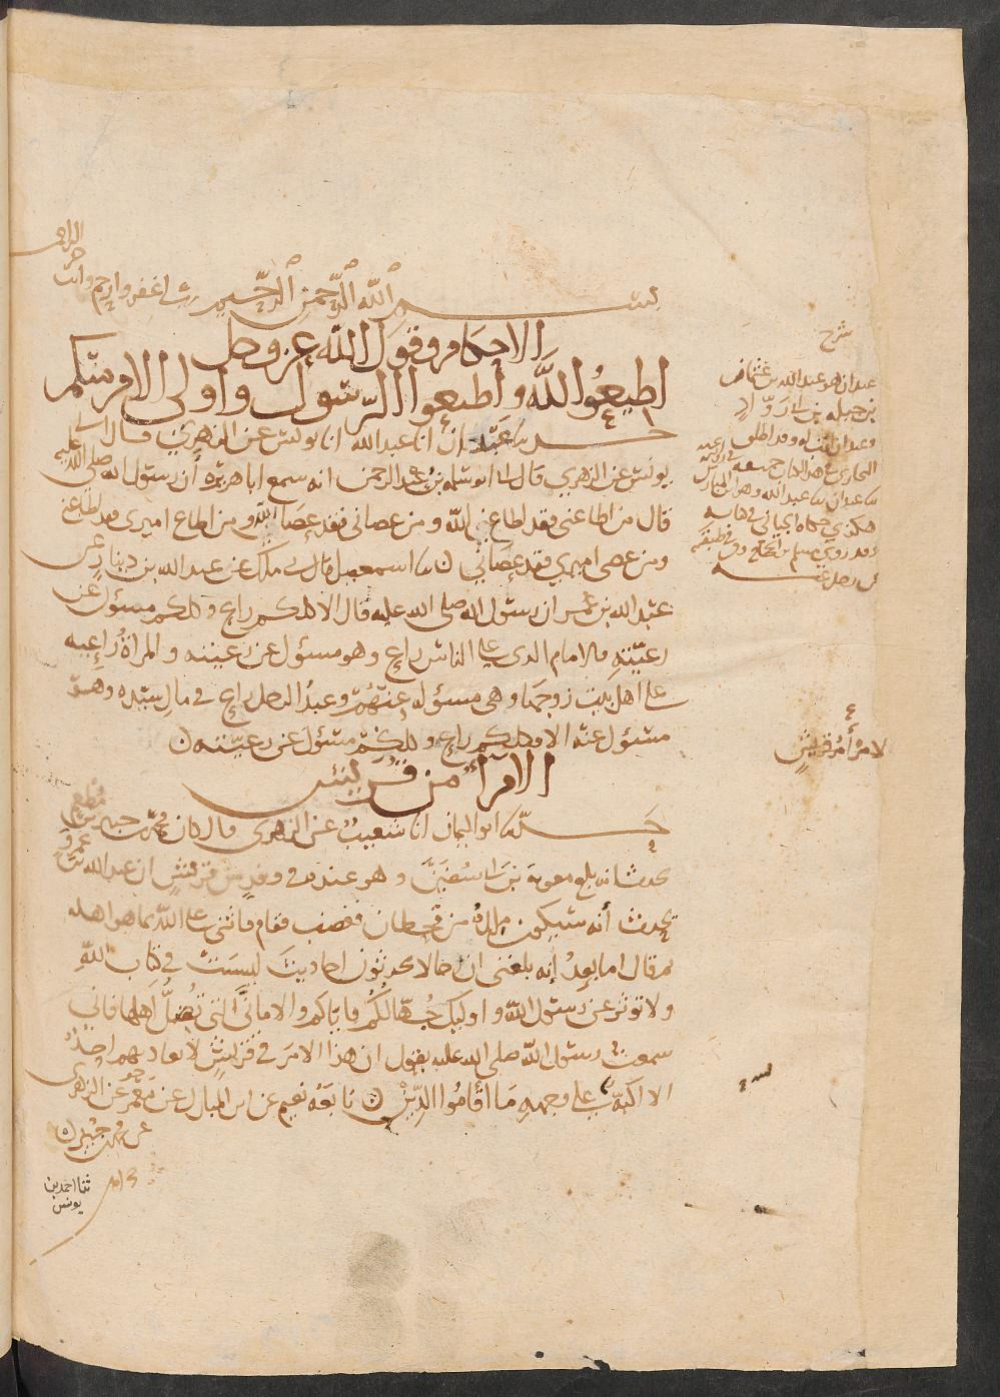 بسم الله الرحمن الرحيم رب اغفر وارحم وانت
خير الراحمين
الاحكام وقول الله عز وجل
اطيعوا الله واطيعوا الرسول واولى الامر منكم
حدثنا عبدان انا عبد الله انا يونس عن الزهري قال
يونس عن الزهري قال ابو سلمه بن عبد الرحمن انه سمع ابا هريرة أن رسول الله صلى الله عليه
قال من اطاعني فقد اطاع الله ومن عصاني فقد عصا الله ومن اطاع اميري فقد اطاعني
ومن عصى اميري فقد عصاني ٥ نا اسمعيل قال ملك عن عبد الله بن دينار عن
عبد الله بن عمر ان رسول الله صلى الله عليه قال الا كلكم راع وكلكم مسؤل عن
رعيته فالامام الذى على الناس راع وهو مسؤل عن رعيته والمراة راعيه
على اهل بيت زوجها وهى مسؤله عنهم وعبد الرجل راع في مال سيده وهو
مسؤل عنه الا فكلكم راع وكلكم مسؤل عن رعيته ٥
الامراء من قريش
حدثنا ابو اليمان انا شعيب عن الزهرى قال كان محمد بن جبير بن مطعم
يحدث انه بلغ معوية بن ابي سفين وهو عنده في وفد من قريش ان عبد الله بن عمرو
يحدث أنه سيكون ملك من قحطان فغضب فقام فاثنى على الله بما هو اهله
ثم قال اما بعد إنه بلغنى ان رجالا يحدثون احاديث ليست في كتاب الله
ولا توثر عن رسول الله واوليك جهالكم فاياكم والاماني التي تضل اهلها فاني
سمعت رسول الله صلى الله عليه يقول ان هذا الامر في قريش لا يعاديهم احد
الا اكبه على وجهه ما اقاموا الدين ٥ تابعه نعيم عن ابن المبارك عن معمر عن الزهرى
عن محمد بن جبير ٥
ثنا احمد بن
يونس
شرح
عبدان هو عبد الله بن عثمان
بن جبله بن ابي روّاد
وعبدان لقب له
نا عبدان نا عبد الله وهو ابن المبارك
هكذي حكاه
وقد روي مسلم
الامر أمر قريش